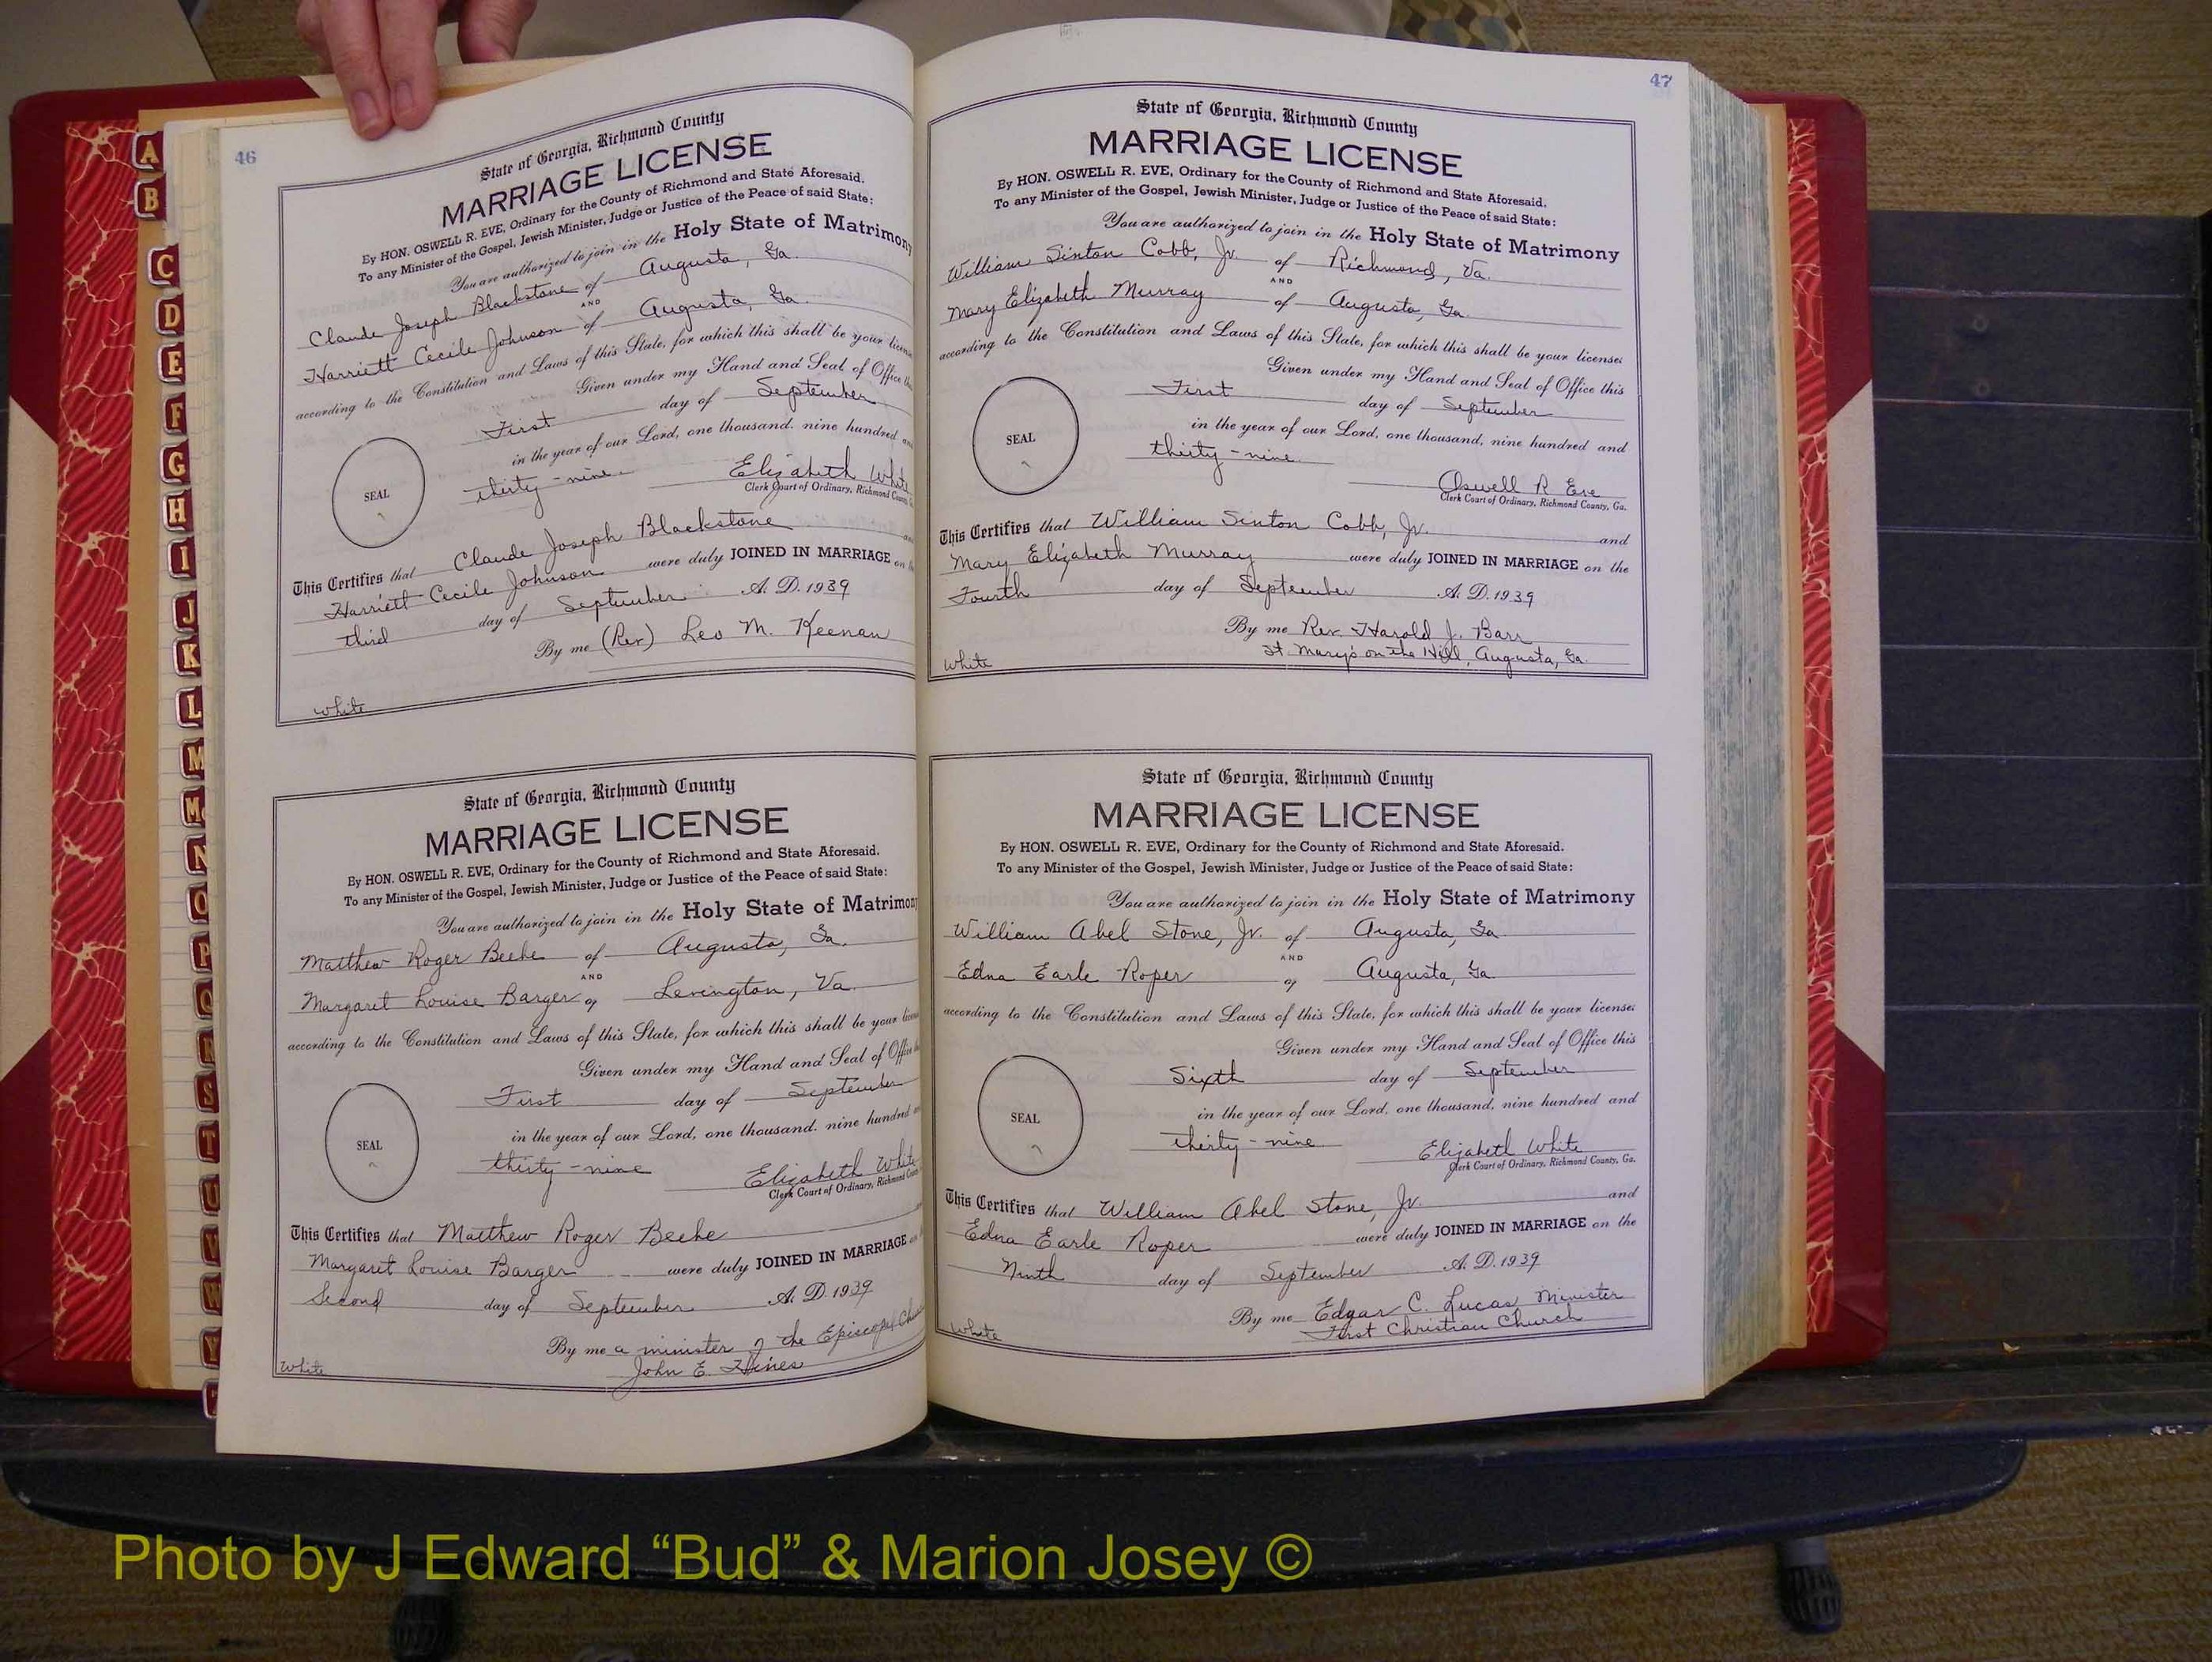 46
State of Georgia, Richmond County
MARRIAGE LICENSE
By HON. OSWELL R. EVE, Ordinary for the County of Richmond and State Aforesaid.
To any Minister of the Gospel, Jewish Minister, Judge or Justice of the Peace of said State:
You are authorized to join in the Holy State of Matrimony
Claude Joseph Blackstone of Augusta, Ga.
AND
Harriett Cecile Johnson of Augusta, Ga.
according to the Constitution and Laws of this State, for which this shall be your license
Given under my Hand and Seal of Office this
First day of September
in the year of our Lord, one thousand. nine hundred and
SEAL
thirty-nine. Elizabeth White
Clerk Court of Ordinary, Richmond County,
This Certifies that Claude Joseph Blackstone and
Harriett Cecile Johnson were duly JOINED IN MARRIAGE on
third day of September A. D. 1939
By me (Rev) Leo M. Keenan
White
State of Georgia, Richmond County
MARRIAGE LICENSE
By HON. OSWELL R. EVE, Ordinary for the County of Richmond and State Aforesaid.
To any Minister of the Gospel, Jewish Minister, Judge or Justice of the Peace of said State:
You are authorized to join in the Holy State of Matrimony
Matthew Roger Beebe of Augusta, Ga.
AND
Margaret Louise Barger of Lexington, Va.
according to the Constitution and Laws of this State, for which this shall be your license
Given under my Hand and Seal of Office
First day of September
in the year of our Lord, one thousand. nine hundred
SEAL
thirty-nine Elizabeth White
Clerk Court of Ordinary, Richmond
This Certifies that Matthew Roger Beebe
Margaret Louise Barger were duly JOINED IN MARRIAGE
Second day of September A. D. 1939
By me a minister of the Episcopal
John E. Hines
White
47
State of Georgia, Richmond County
MARRIAGE LICENSE
By HON. OSWELL R. EVE, Ordinary for the County of Richmond and State Aforesaid.
To any Minister of the Gospel, Jewish Minister, Judge or Justice of the Peace of said State:
You are authorized to join in the Holy State of Matrimony
William Sinton Cobb, Jr. of Richmond, Va.
AND
Mary Elizabeth Murray of Augusta, Ga.
according to the Constitution and Laws of this State, for which this shall be your license:
Given under my Hand and Seal of Office this
First day of September
in the year of our Lord, one thousand, nine hundred and
SEAL
thirty-nine. Oswell R Eve
Clerk Court of Ordinary, Richmond County, Ga.
This Certifies that William Sinton Cobb, Jr. and
Mary Elizabeth Murray were duly JOINED IN MARRIAGE on the
Fourth day of September A. D. 1939
By me Rev. Harold J. Barr
St. Mary's on the Hill, Augusta, Ga.
White
State of Georgia, Richmond County
MARRIAGE LICENSE
By HON. OSWELL R. EVE, Ordinary for the County of Richmond and State Aforesaid.
To any Minister of the Gospel, Jewish Minister, Judge or Justice of the Peace of said State:
You are authorized to join in the Holy State of Matrimony
William Abel Stone, Jr. of Augusta, Ga
AND
Edna Earle Roper of Augusta, Ga
according to the Constitution and Laws of this State, for which this shall be your license:
Given under my Hand and Seal of Office this
Sixth day of September
in the year of our Lord, one thousand, nine hundred and
SEAL
thirty-nine Elizabeth White
Clerk Court of Ordinary, Richmond County, Ga.
This Certifies that William Abel Stone, Jr. and
Edna Earle Roper were duly JOINED IN MARRIAGE on the
Ninth day of September A. D. 1939
By me Edgar C. Lucas Minister
First Christian Church
White
A
B
C
D
E
F
G
H
I
J
K
L
M
Mc
N
O
P
Q
R
S
T
U
V
W
Y
Photo by J Edward “Bud” & Marion Josey ©